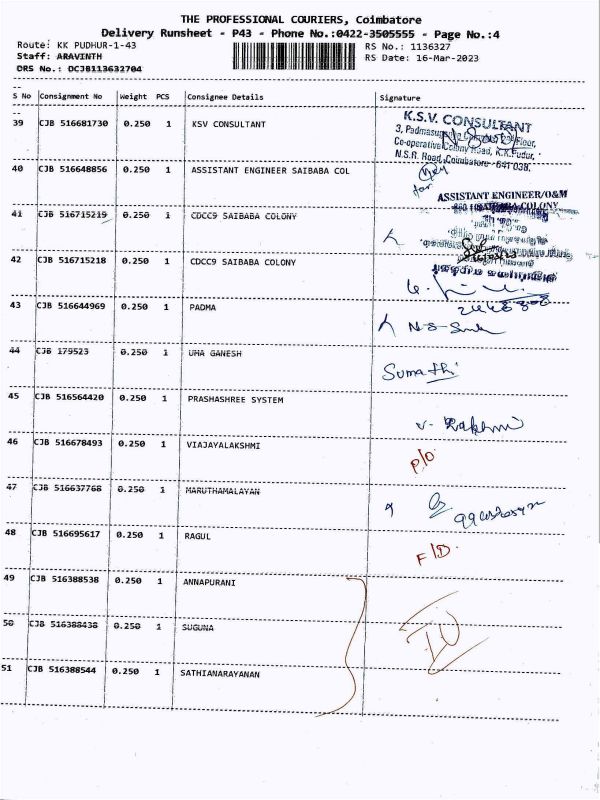 THE PROFESSIONAL COURIERS, Coimbatore
Delivery Runsheet - P43 - Phone No.:0422-3505555 - Page No.:4
Route: KK PUDHUR-1-43
RS No.: 1136327
Staff: ARAVINTH
RS Date: 16-Mar-2023
DRS No.: OCJB113632704
S No Consignment No Weight PCS Consignee Details Signature
39 CJB 516681730 0.250 1 KSV CONSULTANT
K.S.V. CONSULTANT
3, Padmasugam Floor,
Co-operative Colony Road, K.K.Pudur,
N.S.R. Road, Coimbatore - 641 038.
40 CJB 516648856 0.250 1 ASSISTANT ENGINEER SAIBABA COL
for
ASSISTANT ENGINEER/O&M
SAIBABA COLONY
41 CJB 516715219 0.250 1 CDCC9 SAIBABA COLONY
42 CJB 516715218 0.250 1 CDCC9 SAIBABA COLONY
43 CJB 516644969 0.250 1 PADMA
44 CJB 179523 0.250 1 UMA GANESH
Sumathi
45 CJB 516564420 0.250 1 PRASHASHREE SYSTEM
V. Lakshmi
46 CJB 516678493 0.250 1 VIAJAYALAKSHMI
P/O
47 CJB 516637768 0.250 1 MARUTHAMALAYAN
48 CJB 516695617 0.250 1 RAGUL
F/D.
49 CJB 516388538 0.250 1 ANNAPURANI
50 CJB 516388438 0.250 1 SUGUNA
51 CJB 516388544 0.250 1 SATHIANARAYANAN